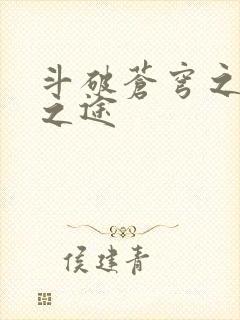 斗破苍穹之
之途
侯建青